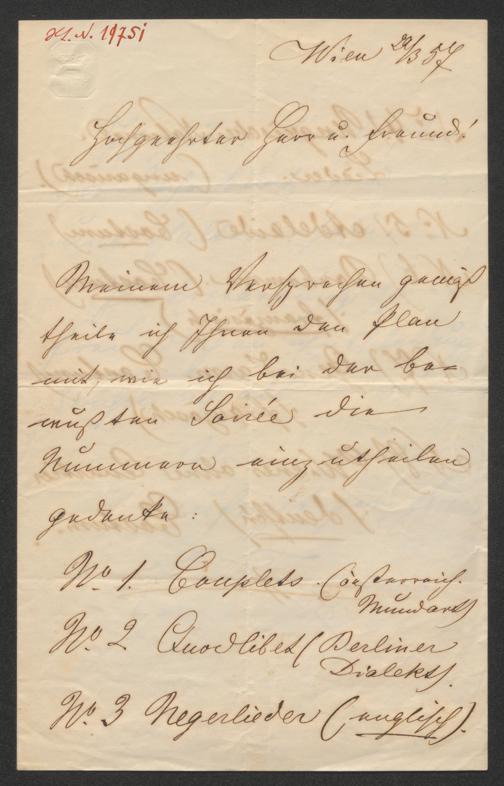 H. N. 1975i
Wien 29/3 57
Hochgeehrter Herr u. Freund!
Meinem Versprechen gemäß
theile ich Ihnen den Plan
mit, wie ich bei der be-
wußten Soirée die
Nummern einzutheilen
gedenke:
No. 1. Couplets. (österreich.
Mundart)
No. 2 Quodlibet (Berliner
Dialekt).
No. 3 Negerlieder (englisch).